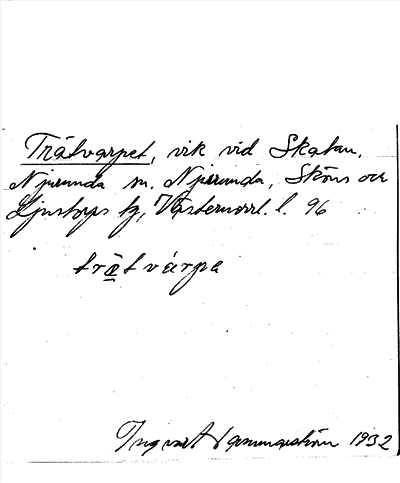 Trätvarpet, vik vid Skatan,
Njurunda sn. Njurunda, Sköns och
Ljustorps tg, Västernorrl. l. 96
trä̱tvárpə
Ingvar 1932